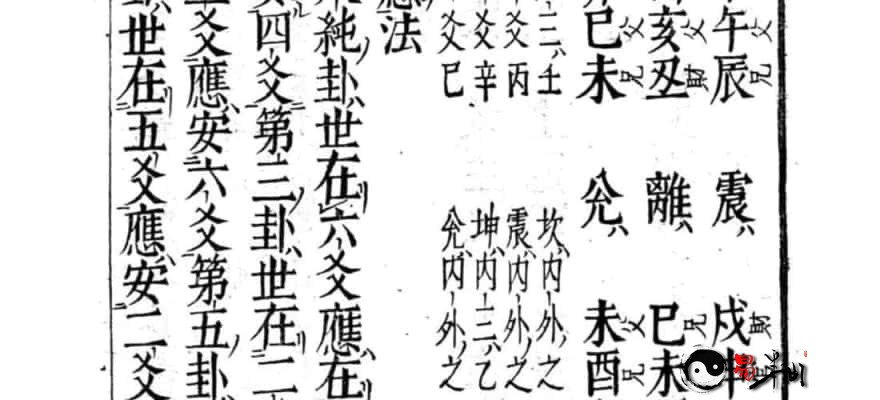 午父辰兄 震 戌財
亥父丑財 離 巳兄未
巳父未兄 兌 未父酉兄
三壬 坎内外之
爻丙 震内外之
爻辛 坤内三乙
爻巳 兌内外之
應法
純卦世在六爻應在
四爻第三卦世在二
爻應安六爻第五卦
世在五爻應安二爻